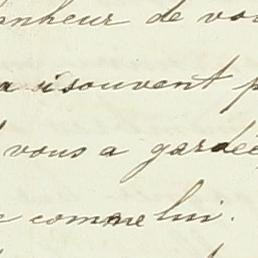 bonheur de vou
a si souvent p
vous a gardée
comme lui.